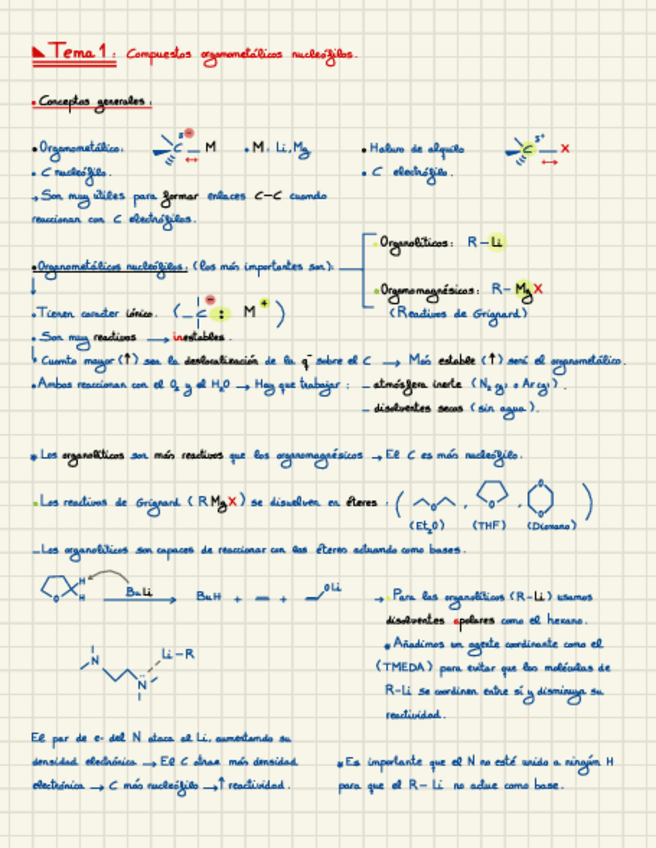 Tema 1: Compuestos organometálicos nucleófilos.
• Conceptos generales:
• Organometálico: C δ⊖ — M • M: Li, Mg • Haluro de alquilo C δ+ — X
• C nucleófilo. • C electrófilo.
→ Son muy útiles para formar enlaces C–C cuando
reaccionan con C electrófilos.
• Organolíticos: R–Li
• Organometálicos nucleófilos: (los más importantes son):
• Organomagnésicos: R–MgX
(Reactivos de Grignard)
• Tienen caracter iónico. ( –C: ⊖ M + )
• Son muy reactivos → inestables.
Cuanto mayor (↑) sea la deslocalización de la q⁻ sobre el C → Más estable (↑) será el organometálico.
• Ambos reaccionan con el O₂ y el H₂O → Hay que trabajar: – atmósfera inerte (N₂(g) o Ar(g)).
– disolventes secos (sin agua).
* Los organolíticos son más reactivos que los organomagnésicos → El C es más nucleófilo.
• Los reactivos de Grignard (RMgX) se disuelven en éteres: ( O , O , O O )
(Et₂O) (THF) (Dioxano)
– Los organolíticos son capaces de reaccionar con los éteres actuando como bases.
O H H BuLi → BuH + = + OLi
→ Para los organolíticos (R–Li) usamos
disolventes apolares como el hexano.
* Añadimos un agente coordinante como el
(TMEDA) para evitar que las moléculas de
R-Li se coordinen entre sí y disminuya su
reactividad.
N N Li–R
El par de e- del N ataca al Li, aumentando su
densidad electrónica → El C atrae más densidad
electrónica → C más nucleófilo → ↑ reactividad.
* Es importante que el N no esté unido a ningún H
para que el R–Li no actue como base.